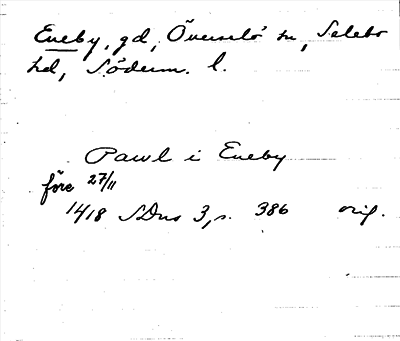 Eneby, gd, Överselö sn, Selebo
hd, Söderm. l.
Pawl i Eneby
före 27/11
1418 SDns 3, s. 386 orig.